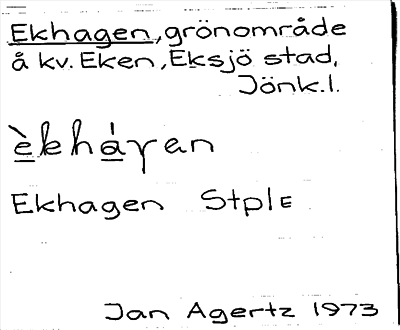 Ekhagen, grönområde
å kv. Eken, Eksjö stad,
Jönk.l.
èkháγan
Ekhagen Stpl E
Jan Agertz 1973